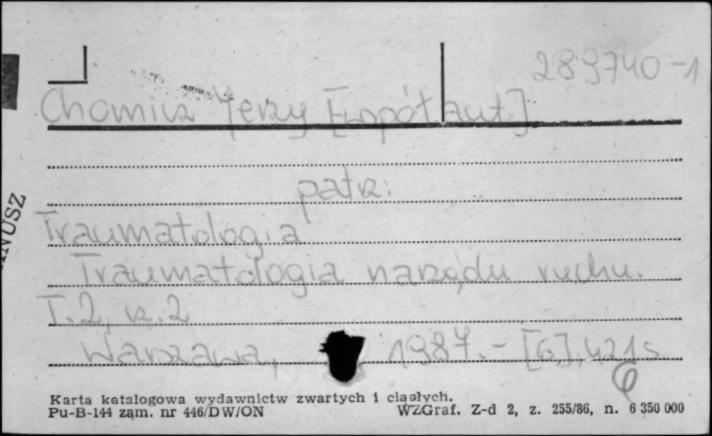 289740-1
Chomicz Jerzy [współaut.]
patrz:
Traumatologia
Traumatologia narządu ruchu.
T.2, cz.2
Warszawa, 1987.- [6], 421 s
6
NUSZ
Karta katalogowa wydawnictw zwartych i ciągłych.
Pu-B-144 zam. nr 446/DW/ON WZGraf. Z-d 2, z. 255/86, n. 6 350 000